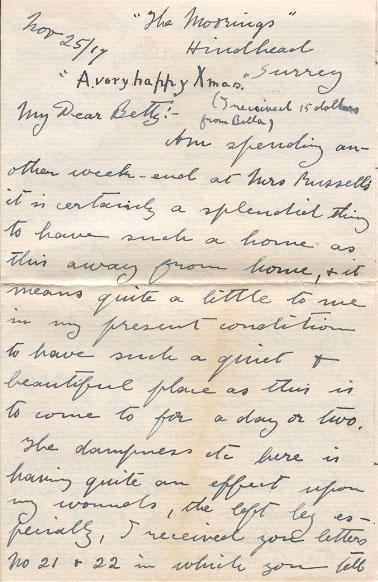 Nov 25/17
"The Moorings"
Hindhead
Surrey
"A very happy Xmas."
(I received 15 dollars
from Bella)
My Dear Betty:-
Am spending an-
other week-end at Mrs Russells
it is certainly a splendid thing
to have such a home as
this away from home, & it
means quite a little to me
in my present condition
to have such a quiet &
beautiful place as this is
to come to for a day or two.
The dampness etc here is
having quite an effect upon
my wounds, the left leg es-
pecially, I received your letters
No 21 & 22 in which you tell